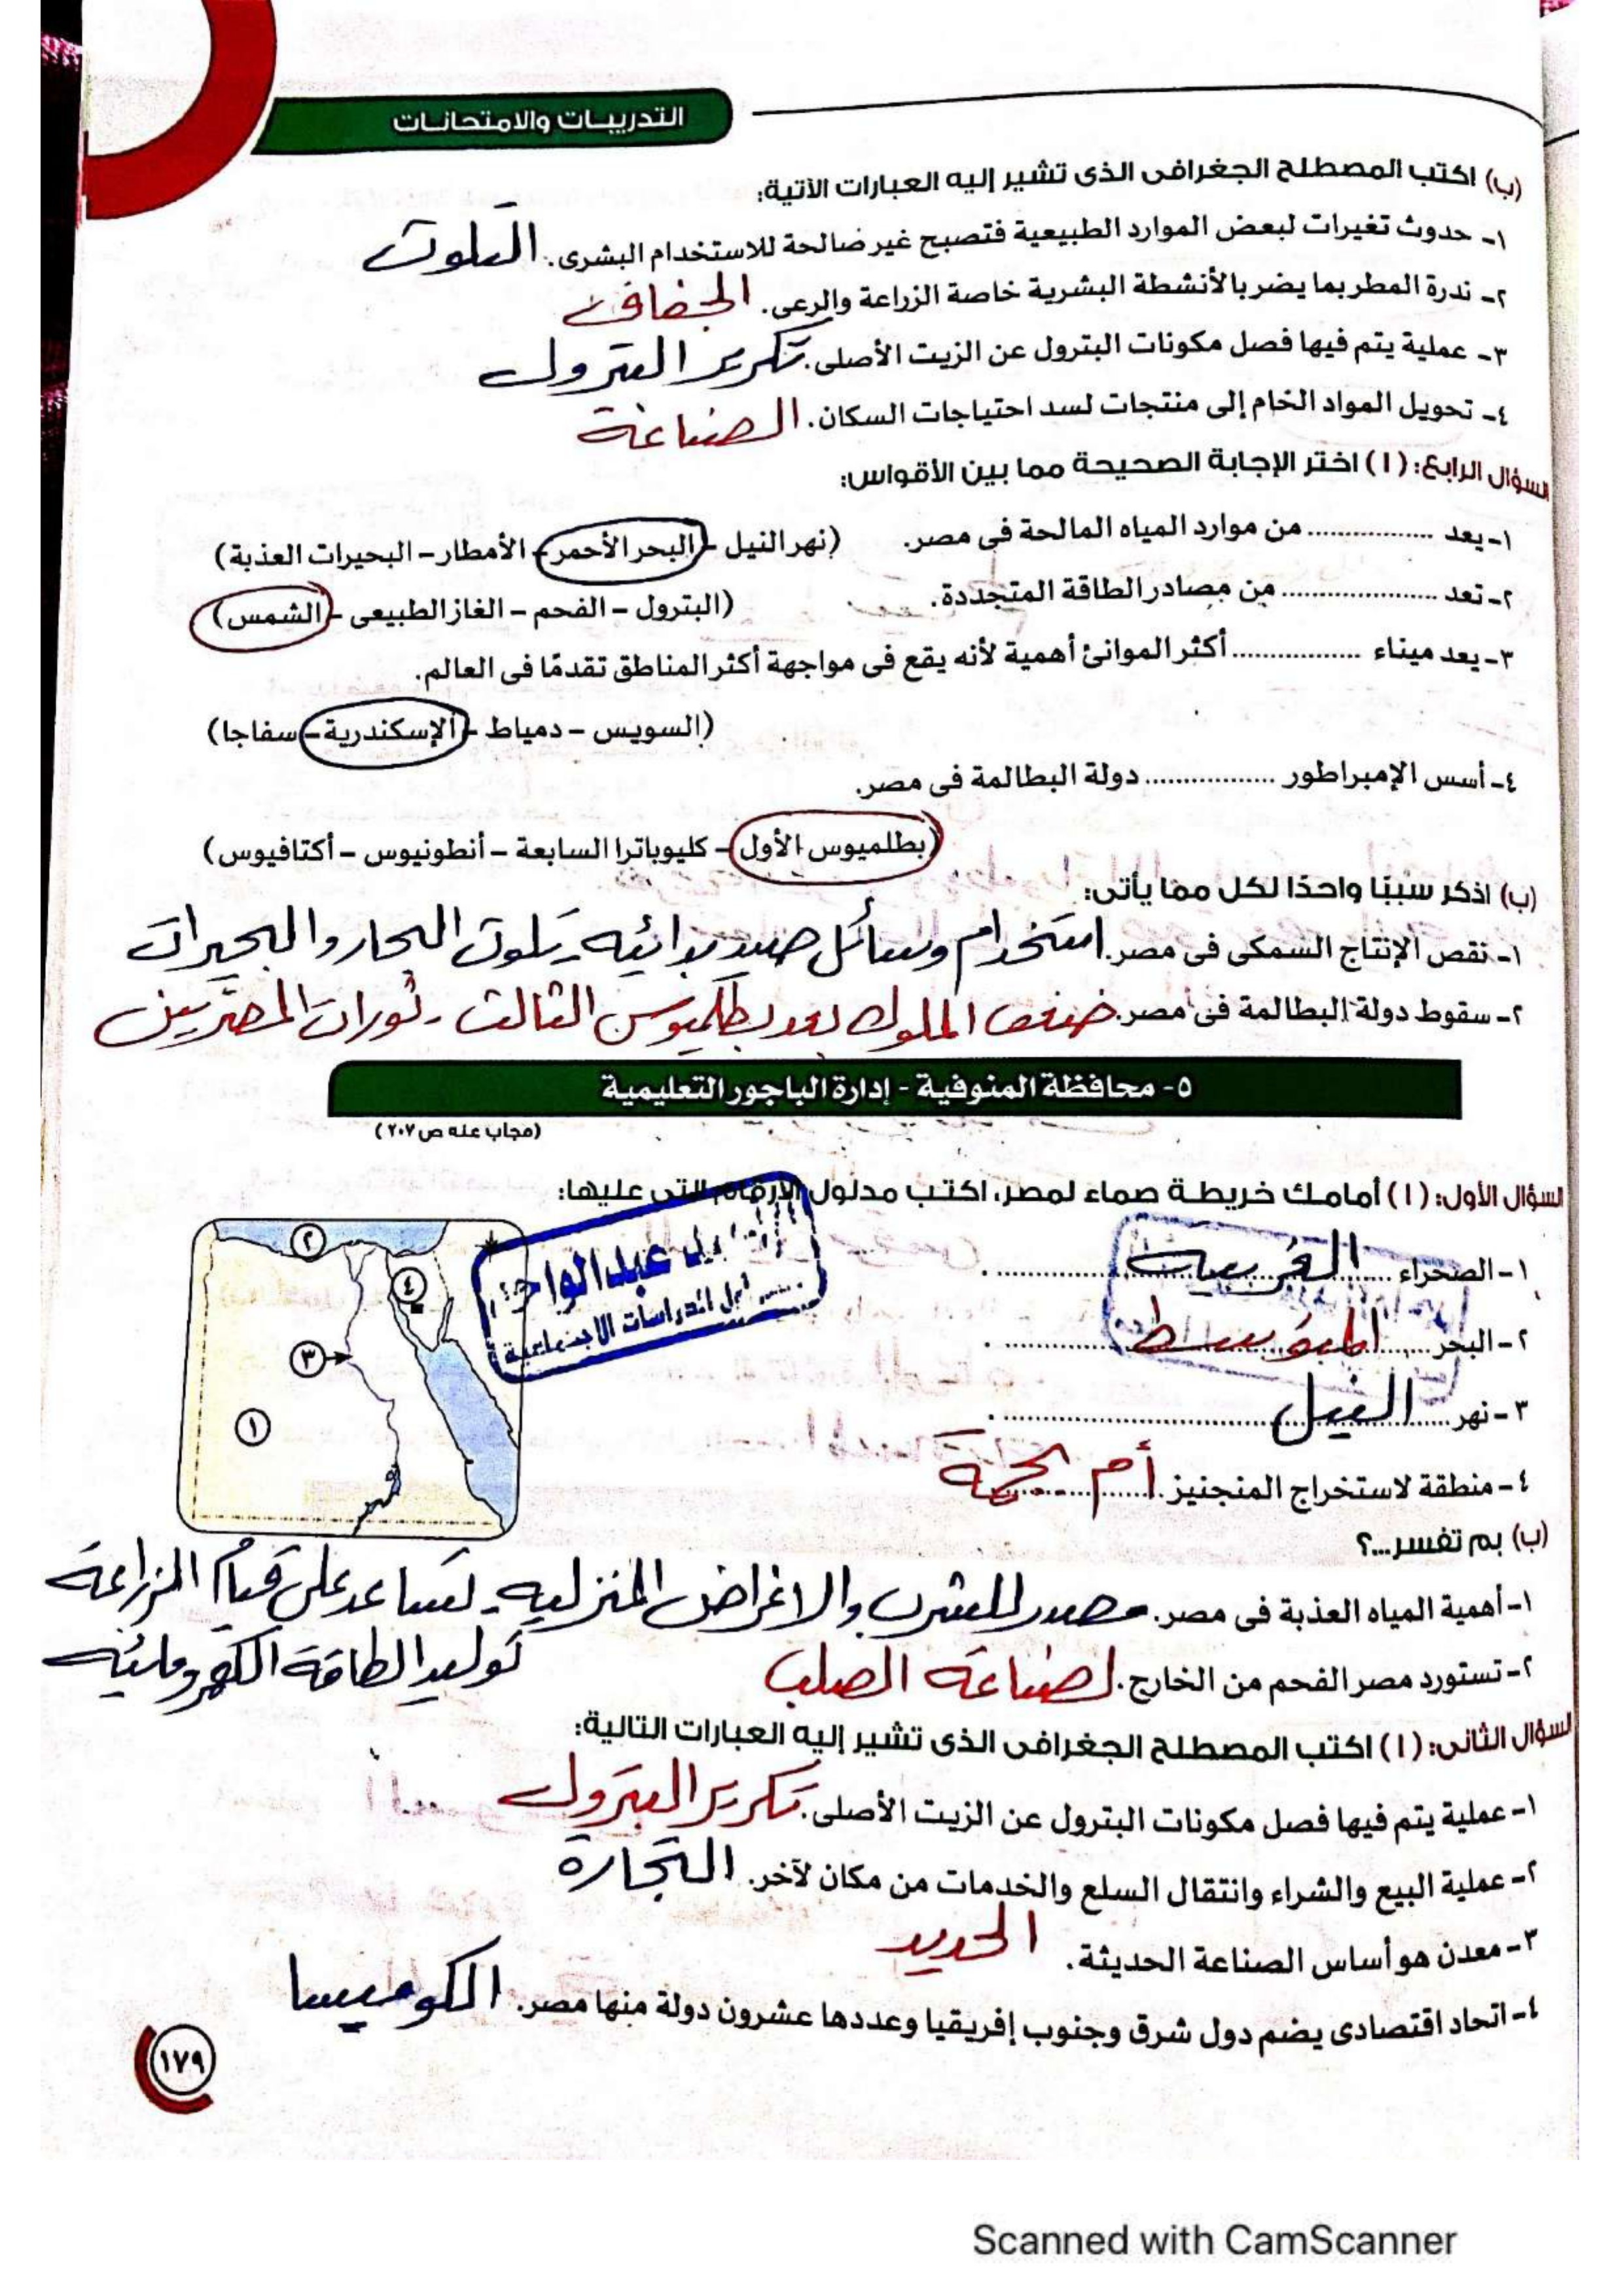 التدريبات والامتحانات
(ب) اكتب المصطلح الجغرافى الذى تشير إليه العبارات الآتية:
١- حدوث تغيرات لبعض الموارد الطبيعية فتصبح غير صالحة للاستخدام البشرى. التلوث
٢- ندرة المطر بما يضر بالأنشطة البشرية خاصة الزراعة والرعى. الجفاف
٣- عملية يتم فيها فصل مكونات البترول عن الزيت الأصلى. تكرير البترول
٤- تحويل المواد الخام إلى منتجات لسد احتياجات السكان. الصناعة
السؤال الرابع: (١) اختر الإجابة الصحيحة مما بين الأقواس:
١- يعد ................ من موارد المياه المالحة فى مصر. (نهر النيل – البحر الأحمر – الأمطار – البحيرات العذبة)
٢- تعد .................... من مصادر الطاقة المتجددة. (البترول – الفحم – الغاز الطبيعى – الشمس)
٣- يعد ميناء ................ أكثر الموانئ أهمية لأنه يقع فى مواجهة أكثر المناطق تقدمًا فى العالم.
(السويس – دمياط – الإسكندرية – سفاجا)
٤- أسس الإمبراطور ................ دولة البطالمة فى مصر.
(بطلميوس الأول – كليوباترا السابعة – أنطونيوس – أكتافيوس)
(ب) اذكر سببًا واحدًا لكل مما يأتى:
١- نقص الإنتاج السمكى فى مصر. استخدام وسائل صيد بدائيه - تلوث البحار والبحيرات
٢- سقوط دولة البطالمة فى مصر. ضعف الملوك بعد بطلميوس الثالث - ثورات المصريين
٥- محافظة المنوفية - إدارة الباجور التعليمية
(مجاب عنه ص ٢٠٧)
السؤال الأول: (١) أمامك خريطة صماء لمصر، اكتب مدلول الأرقام التى عليها:
١- الصحراء الغربية
٢- البحر المتوسط
٣- نهر النيل
٤- منطقة لاستخراج المنجنيز. أم بجمة
٢
٤
٣
١
عبد الواحد
أول الدراسات الاجتماعية
(ب) بم تفسر...؟
١- أهمية المياه العذبة فى مصر. مصدر للشرب والاغراض المنزليه - تساعد على قيام الزراعة
توليد الطاقة الكهرومائيه
٢- تستورد مصر الفحم من الخارج. لصناعة الصلب
السؤال الثانى: (١) اكتب المصطلح الجغرافى الذى تشير إليه العبارات التالية:
١- عملية يتم فيها فصل مكونات البترول عن الزيت الأصلى. تكرير البترول
٢- عملية البيع والشراء وانتقال السلع والخدمات من مكان لآخر. التجارة
٣- معدن هو أساس الصناعة الحديثة. الحديد
٤- اتحاد اقتصادى يضم دول شرق وجنوب إفريقيا وعددها عشرون دولة منها مصر. الكوميسا
١٧٩
Scanned with CamScanner